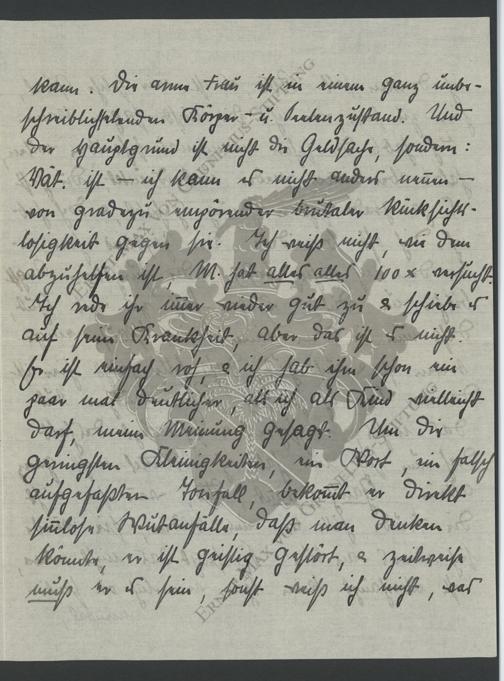 kann. Die arme Frau ist in einem ganz unbe-
schreiblich elenden Körper- u. Seelenzustand. Und
der Hauptgrund ist nicht die Geldsache, sondern:
Vat. ist – ich kann es nicht anders nennen –
von gradezu empörender brutaler Rücksichts-
losigkeit gegen sie. Ich weiß nicht, wie dem
abzuhelfen ist, M. hat alles alles 100 x versucht.
Ich rede ihr immer wieder gut zu & schiebe es
auf seine Krankheit, aber das ist es nicht.
Er ist einfach roh, & ich hab ihm schon ein
paar mal deutlicher, als ich als Kind vielleicht
darf, meine Meinung gesagt. Um die
geringsten Kleinigkeiten, ein Wort, ein falsch
aufgefaßten Tonfall, bekommt er direkt
sinnlose Wutanfälle, daß man denken
könnte, er ist geistig gestört, & zeitweise
muß er es sein, sonst weiß ich nicht, was